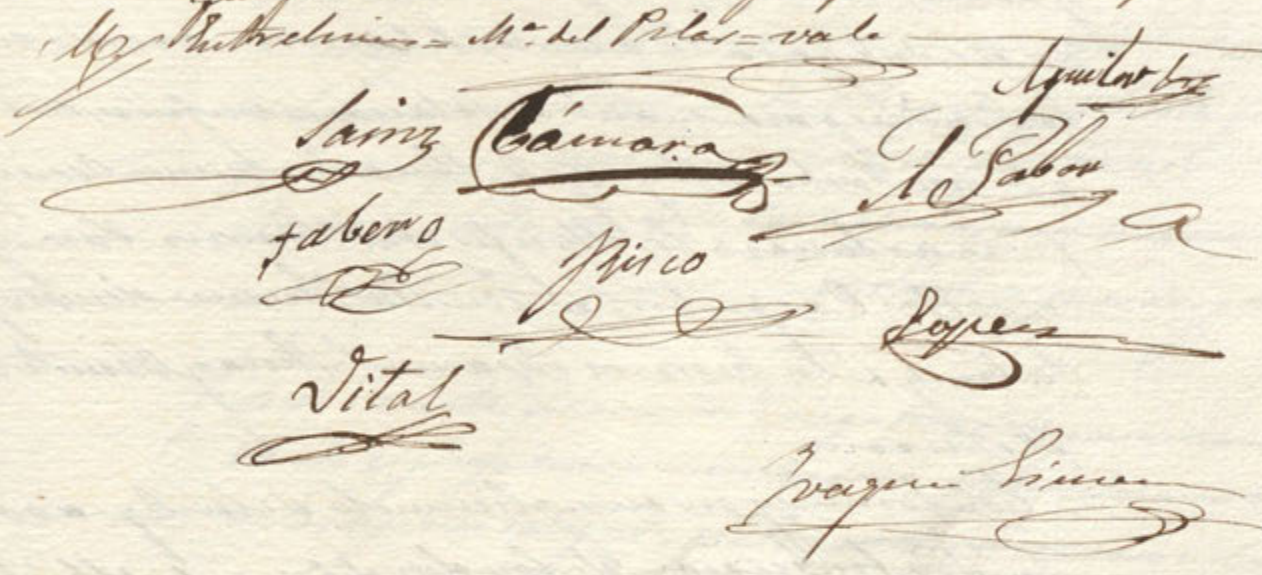 Entrelineas = Mª del Pilar = vale
Aguilar
Sainz Cámara A Pabon
Tabero Risco
Lopez
Vital
Joaquin Gimen